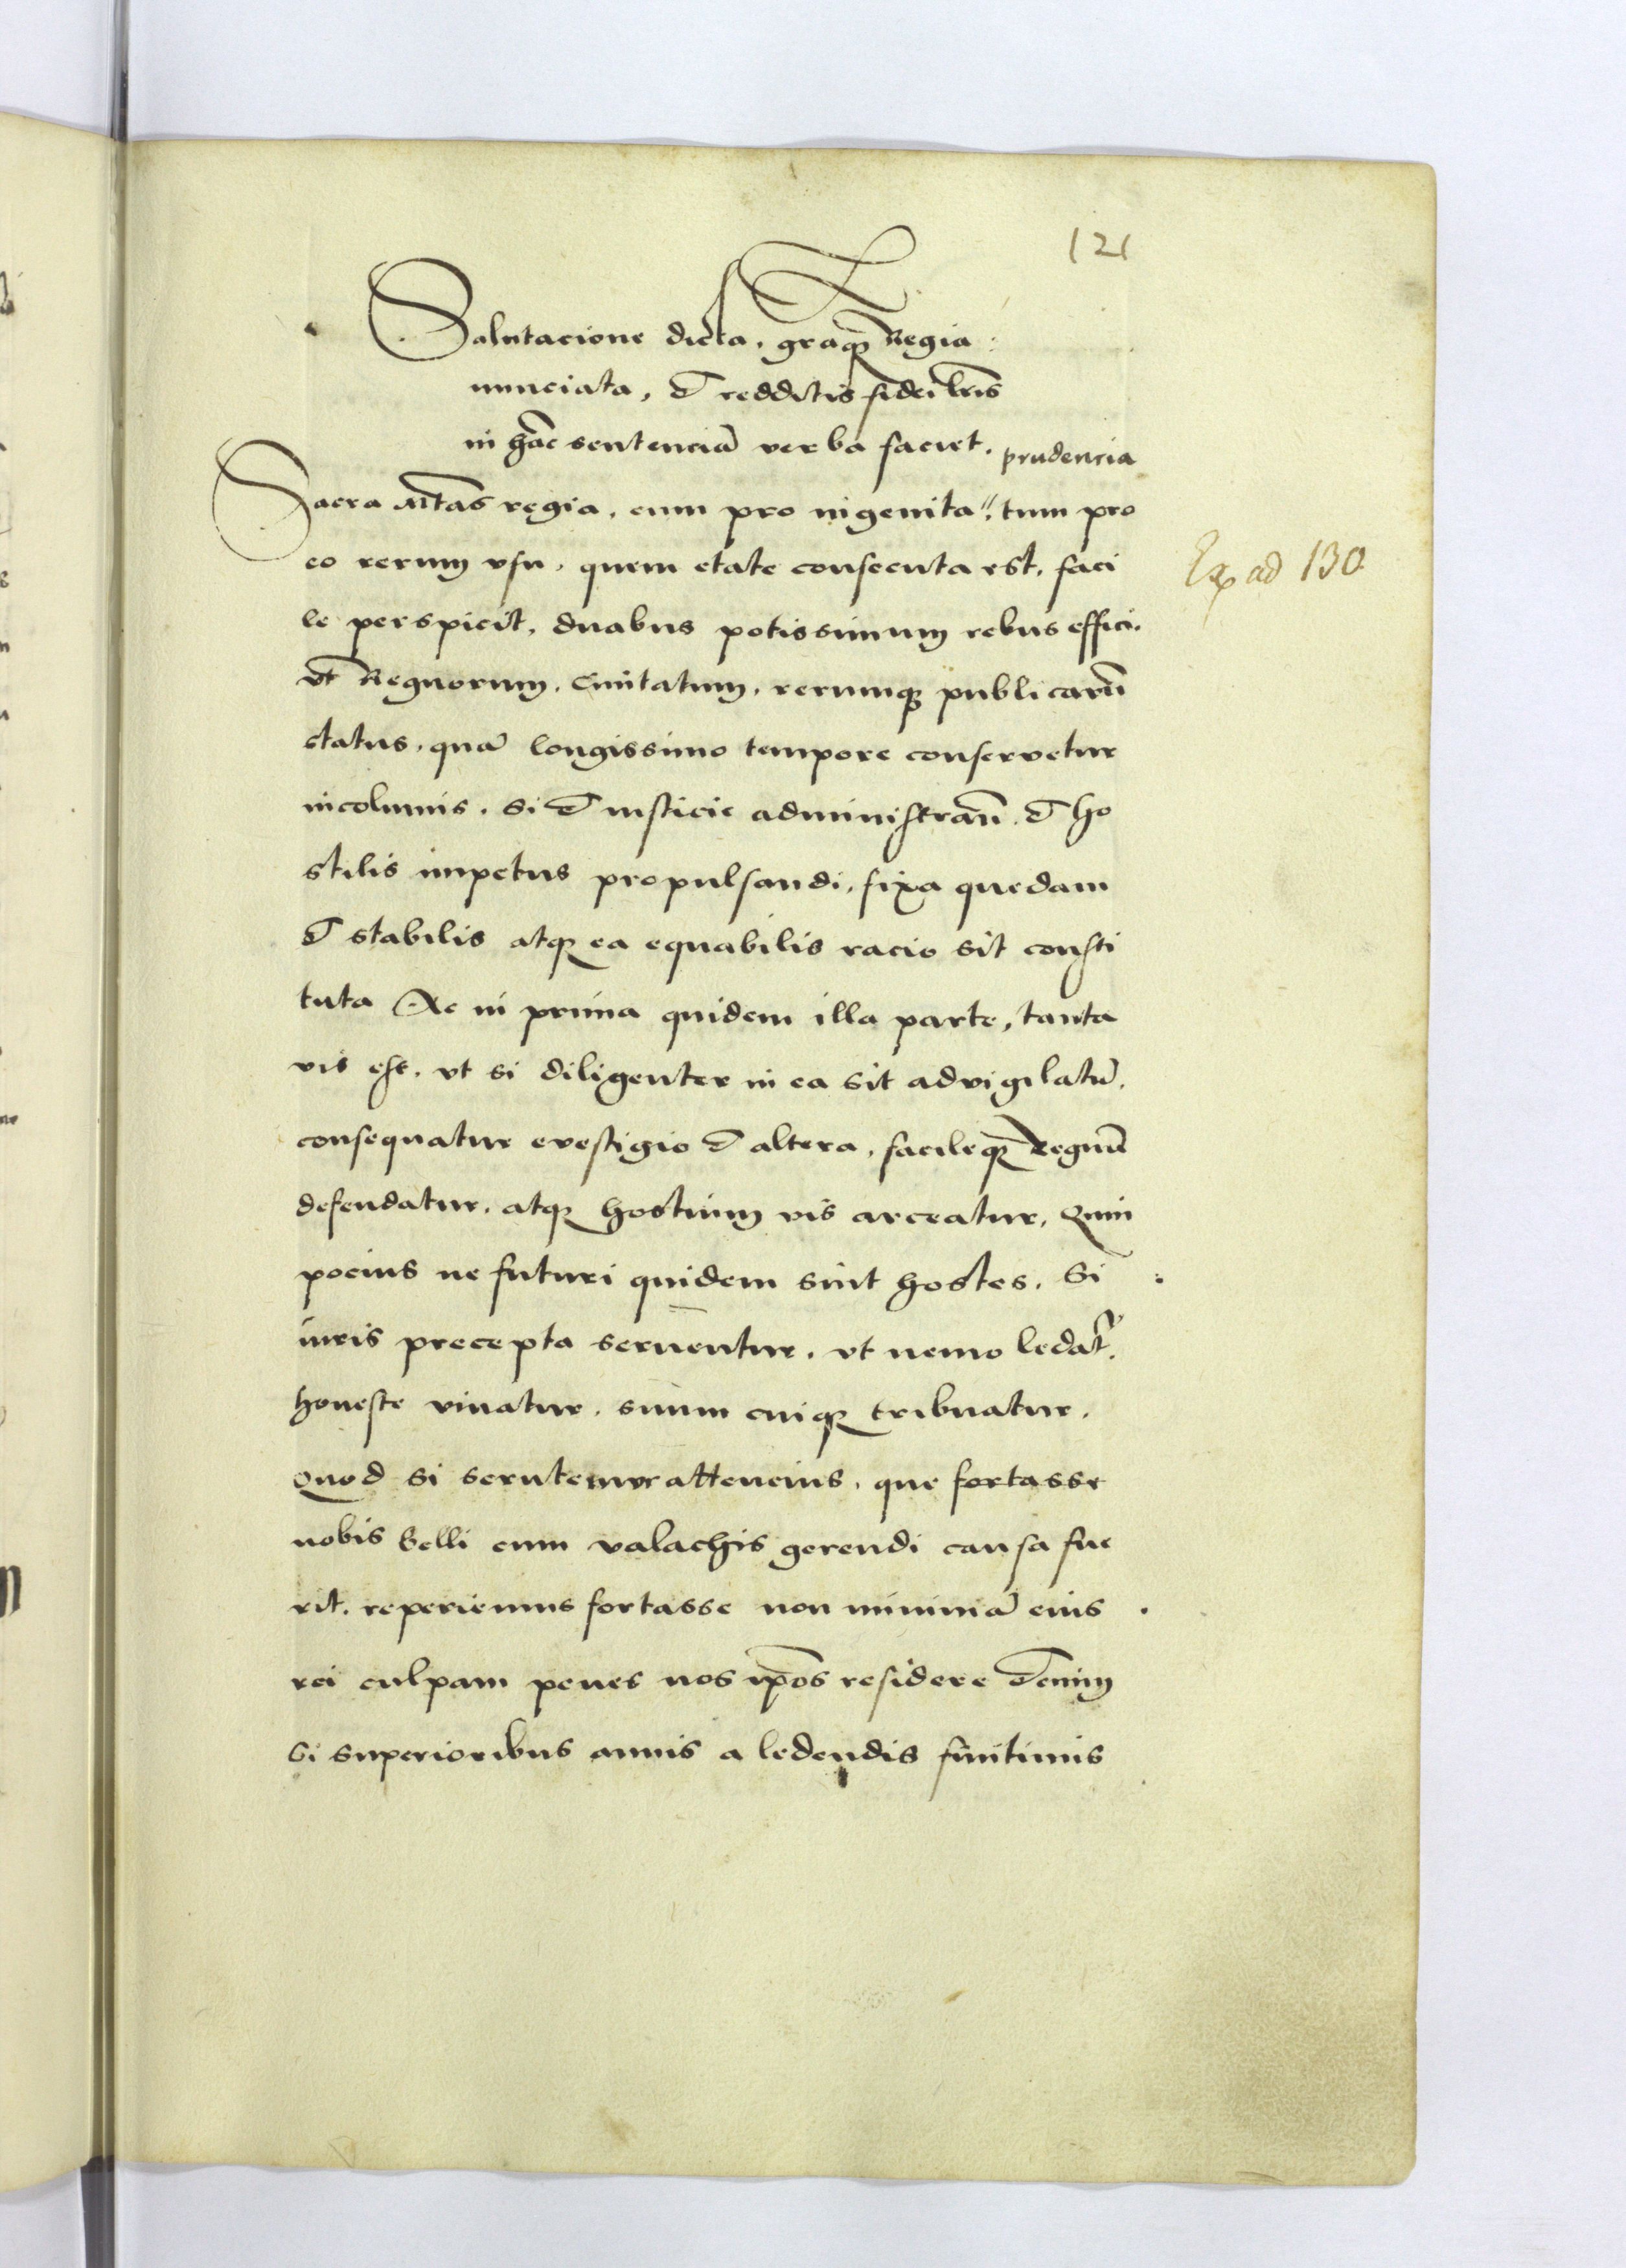 121
Salutacione dicta, graq̄ Regia
nunciata, & redditis fidei lr̄is
in hāc sentenciā verba faciet.
prudencia
Sacra M̄tas regia, cum pro ingenita, tum pro
eo rerum vsu, quem etate consecuta est, faci
le perspicit, duabus potissimum rebus effici.
vt Regnorum, Ciuitatum, rerumq̄ publicarū
status, quā longissimo tempore conservetur
incolumis. Si & iusticie administrān̄. & ho
stilis impetus propulsandi, fixa quedam
& stabilis atq̄ ea equabilis racio sit consti
tuta Ac in prima quidem illa parte, tanta
vis est, vt si diligenter in ea sit advigilatū,
consequatur evestigio & altera, facileq̄ Regnū
defendatur, atq̄ hostium vis arceatur, Quin
pocius ne futuri quidem sint hostes. Si
iuris precepta seruentur, vt nemo ledat᷑.
honeste viuatur, suum cuiq̄ tribuatur.
Quod si scrutemur attencius, que fortasse
nobis belli cum valachis gerendi causa fue
rit, reperiemus fortasse non minimā eius
rei culpam penes nos ip̄os residere &enim
Si superioribus annis a ledendis finitimis
Ex ad 130